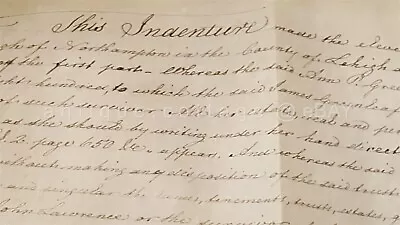 This Indenture made the eleve
gh of Northampton in the County of Lehigh a
of the first part – Whereas the said Ann P. Gree
ght hundred, to which the said James Greenleaf
of such survivor All her estate real and per
as she should by writing under her hand direct
2. page 650 &c. appears. And whereas the said
without making any disposition of the said trusts
and singular the tenements, trusts, estates,
John Lawrence or the survivor